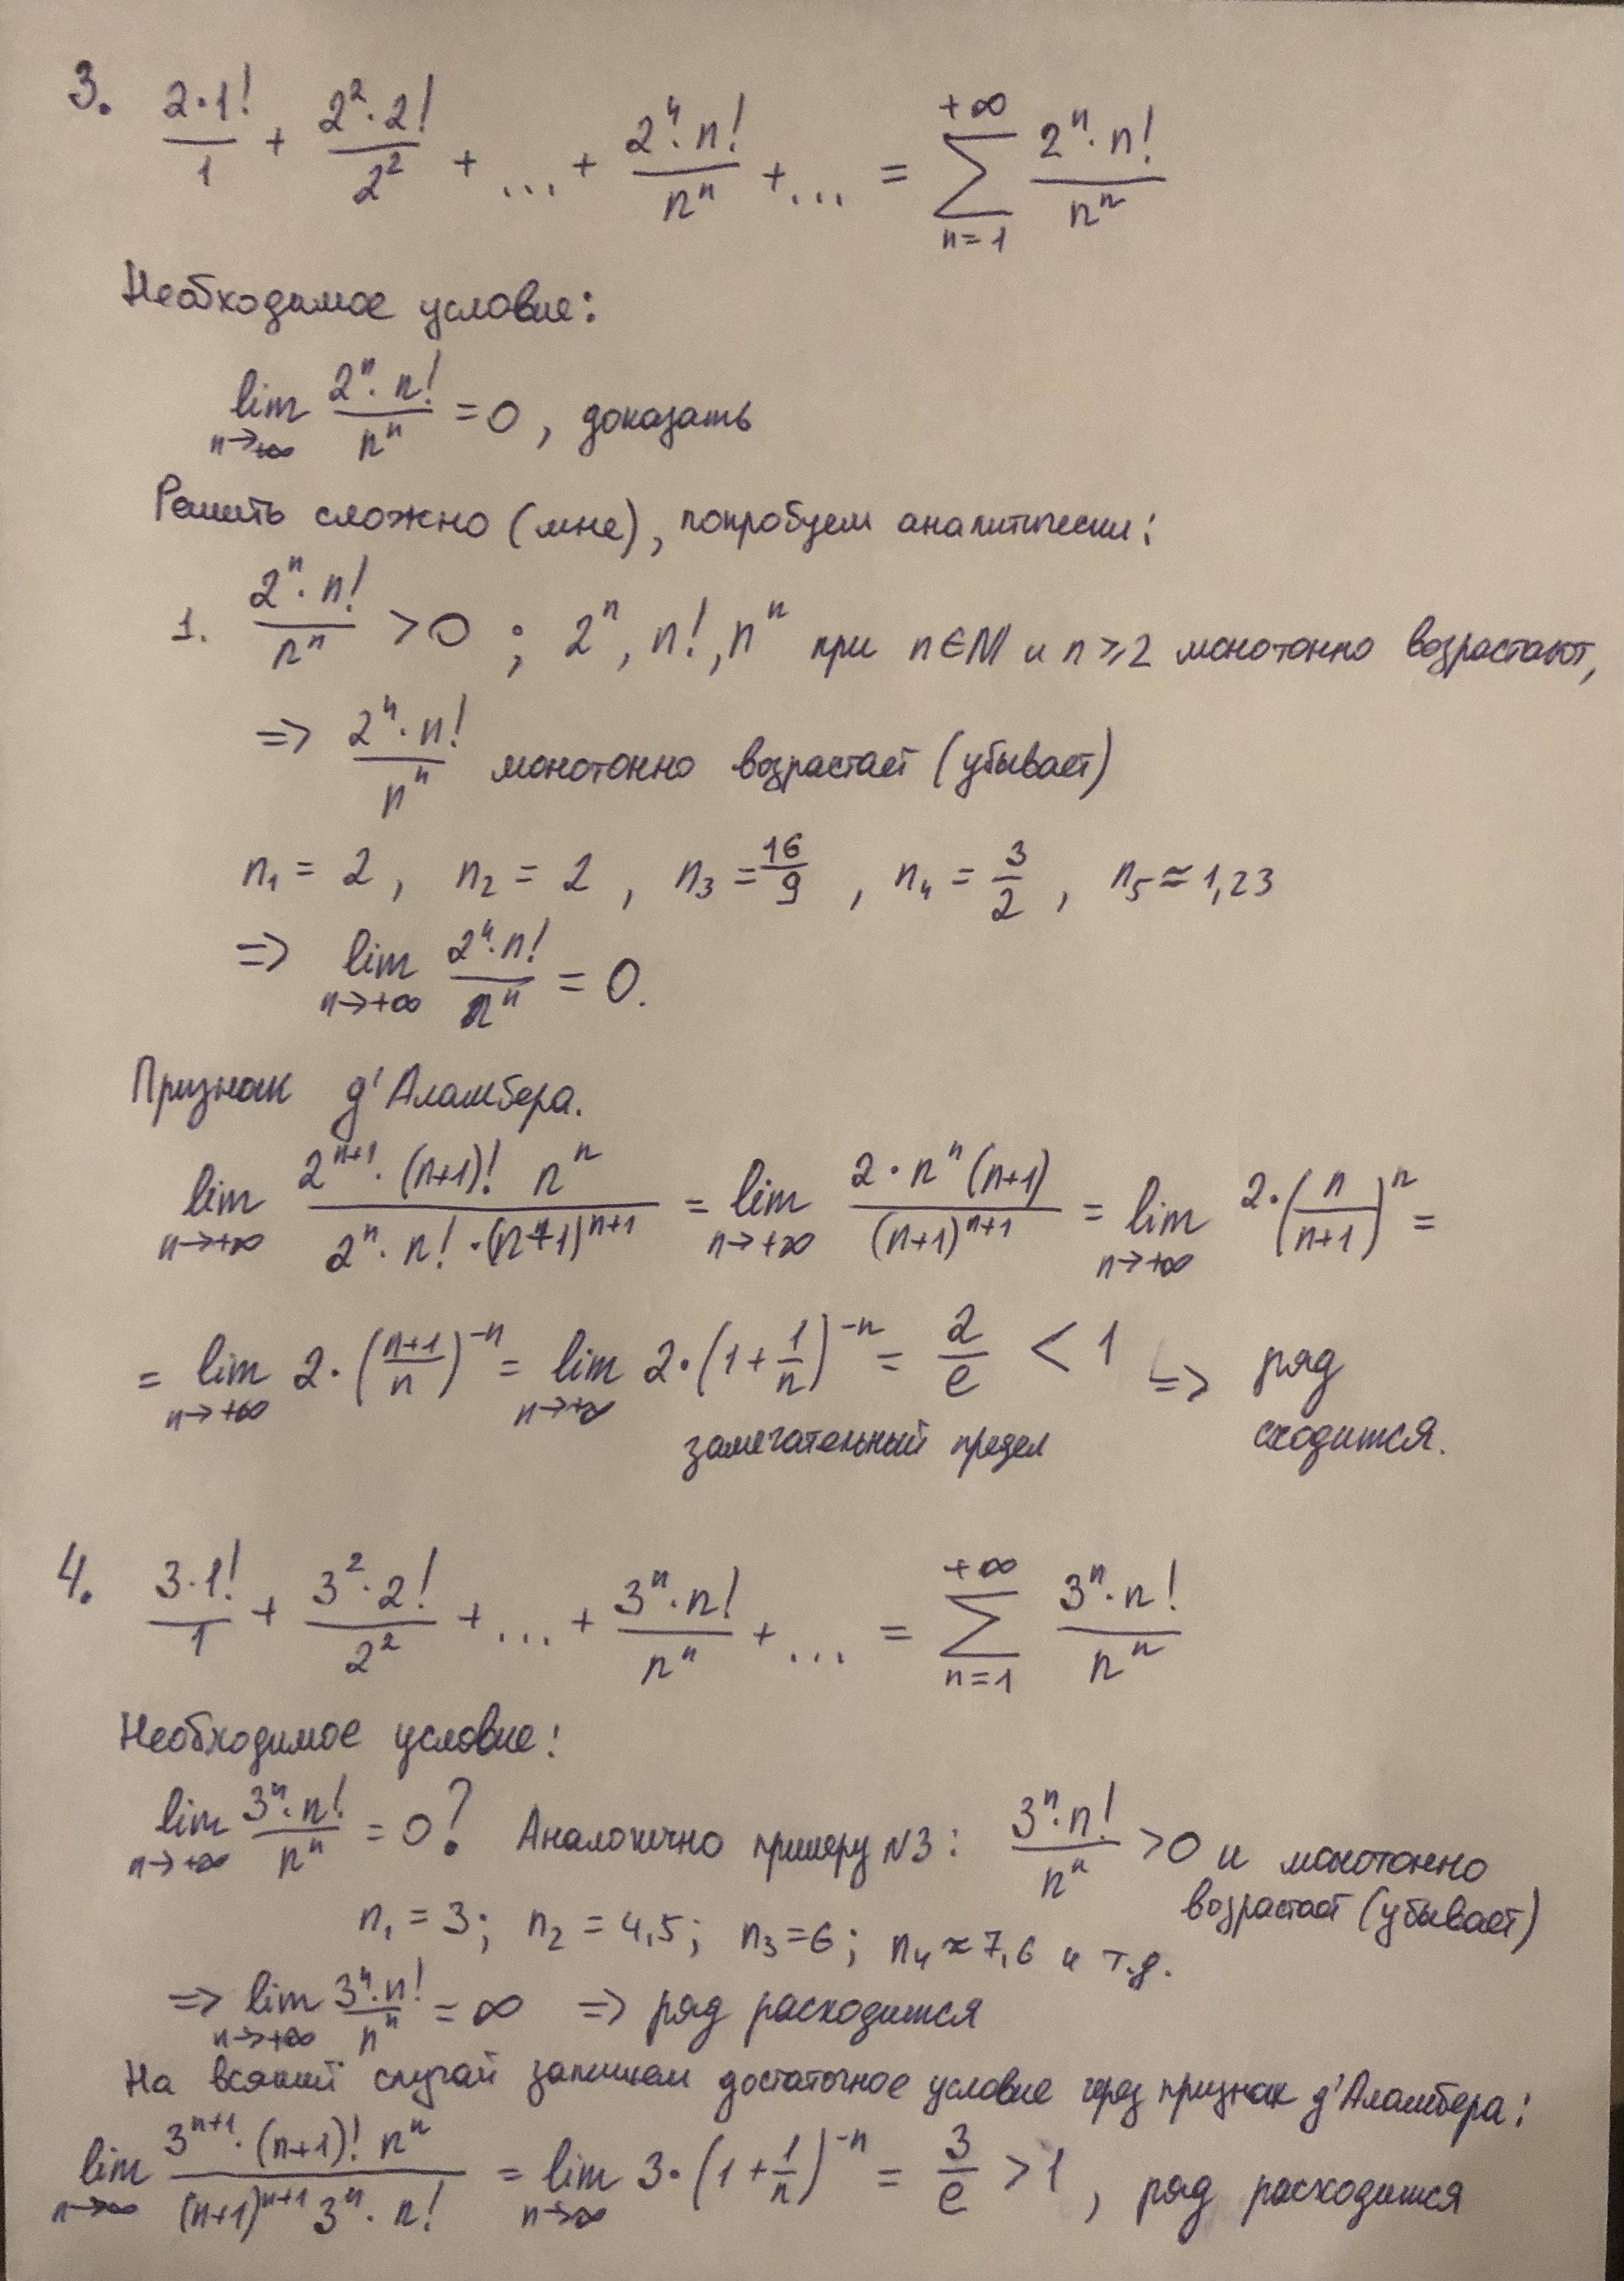 3. 2·1!/1 + 2²·2!/2² + ... + 2ⁿ·n!/nⁿ + ... = ∑_{n=1}^{+∞} 2ⁿ·n!/nⁿ
Необходимое условие:
lim_{n→+∞} 2ⁿ·n!/nⁿ = 0, доказать
Решить сложно (мне), попробуем аналитически:
1. 2ⁿ·n!/nⁿ > 0 ; 2ⁿ, n!, nⁿ при n∈ℕ и n⩾2 монотонно возрастают,
=> 2ⁿ·n!/nⁿ монотонно возрастает (убывает)
n₁ = 2, n₂ = 2, n₃ = 16/9, n₄ = 3/2, n₅ ≈ 1,23
=> lim_{n→+∞} 2ⁿ·n!/nⁿ = 0.
Признак д'Аламбера.
lim_{n→+∞} 2ⁿ⁺¹·(n+1)! nⁿ/(2ⁿ·n!·(n+1)ⁿ⁺¹) = lim_{n→+∞} 2·nⁿ(n+1)/(n+1)ⁿ⁺¹ = lim_{n→+∞} 2·(n/(n+1))ⁿ =
= lim_{n→+∞} 2·((n+1)/n)⁻ⁿ = lim_{n→+∞} 2·(1+1/n)⁻ⁿ = 2/e < 1 => ряд
замечательный предел сходится.
4. 3·1!/1 + 3²·2!/2² + ... + 3ⁿ·n!/nⁿ + ... = ∑_{n=1}^{+∞} 3ⁿ·n!/nⁿ
Необходимое условие:
lim_{n→+∞} 3ⁿ·n!/nⁿ = 0? Аналогично примеру №3: 3ⁿ·n!/nⁿ > 0 и монотонно
возрастает (убывает)
n₁ = 3; n₂ = 4,5; n₃ = 6; n₄ ≈ 7,6 и т.д.
=> lim_{n→+∞} 3ⁿ·n!/nⁿ = ∞ => ряд расходится
На всякий случай запишем достаточное условие через признак д'Аламбера:
lim_{n→∞} 3ⁿ⁺¹·(n+1)! nⁿ/((n+1)ⁿ⁺¹ 3ⁿ·n!) = lim_{n→∞} 3·(1+1/n)⁻ⁿ = 3/e > 1, ряд расходится